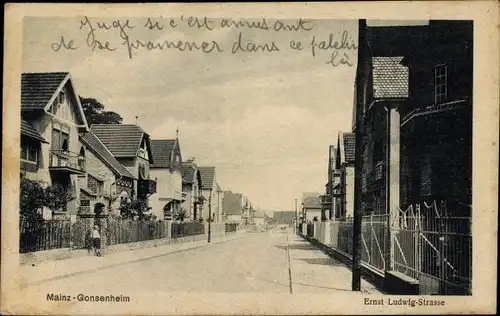 Juge si c'est amusant
de se promener dans ce patelin
là
Mainz-Gonsenheim
Ernst Ludwig-Strasse